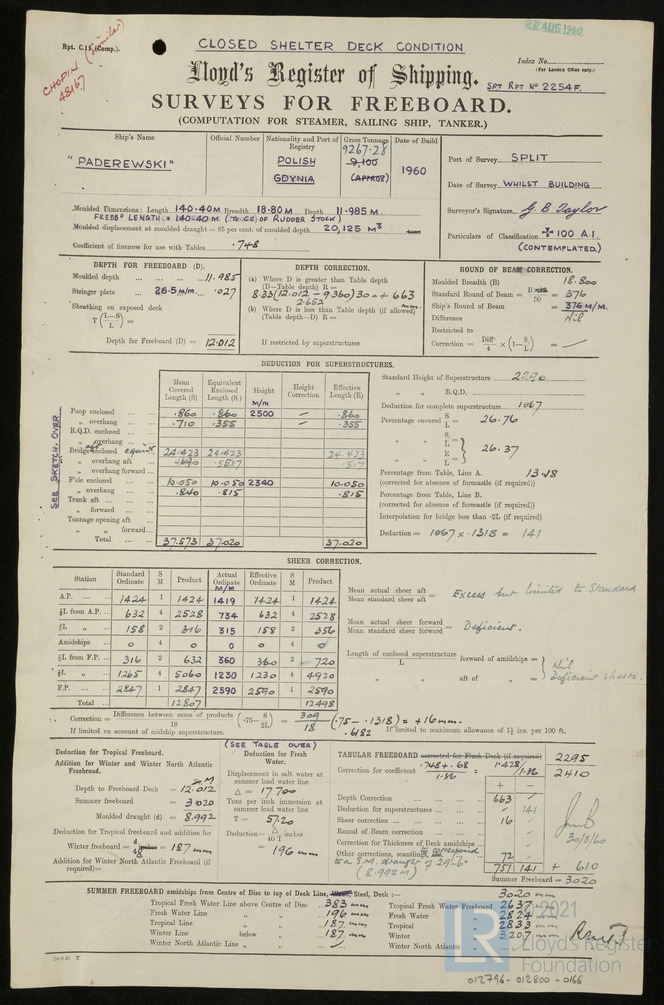 22 AUG 1960
Rpt. C.11. (Comp.).
CLOSED SHELTER DECK CONDITION
CHOPIN (similar)
48167
Index No.
(For London Office only.)
Lloyd's Register of Shipping.
SPT RPT No 2254F.
SURVEYS FOR FREEBOARD.
(COMPUTATION FOR STEAMER, SAILING SHIP, TANKER.)
Ship's Name Official Number Nationality and Port of Registry Gross Tonnage Date of Build
"PADEREWSKI" POLISH GDYNIA 9267.28 9,100 (APPROX) 1960
Port of Survey SPLIT
Date of Survey WHILST BUILDING
Surveyor's Signature G B Taylor
Particulars of Classification 100 A.1.
(CONTEMPLATED.)
Moulded Dimensions: Length 140.40M Breadth 18.80M Depth 11.985 M.
FREEBD LENGTH = 140.40 M (TO CR. OF RUDDER STOCK)
Moulded displacement at moulded draught = 85 per cent. of moulded depth 20,125 M³
Coefficient of fineness for use with Tables .748
DEPTH FOR FREEBOARD (D).
Moulded depth 11.985
Stringer plate 26.5 m/m .027
Sheathing on exposed deck
T (L-S / L) =
Depth for Freeboard (D) = 12.012
DEPTH CORRECTION.
(a) Where D is greater than Table depth
(D—Table depth) R =
8.33 (12.012 - 9.360) 30 = + 663 mm.
2.652
(b) Where D is less than Table depth (if allowed)
(Table depth—D) R =
If restricted by superstructures
ROUND OF BEAM CORRECTION.
Moulded Breadth (B) 18.800
Standard Round of Beam = 376
Ship's Round of Beam = 376 M/M.
Difference Nil
Restricted to
Correction = Diffce / 4 × (1 - S₁ / L) =
DEDUCTION FOR SUPERSTRUCTURES.
SEE SKETCH OVER
Mean Covered Length (S) Equivalent Enclosed Length (S₁) Height Height Correction Effective Length (E)
m/m
Poop enclosed .860 .860 2500 — .860
" overhang .710 .355 — .355
R.Q.D. enclosed
" overhang
Bridge enclosed 24.423 24.423 24.423
" overhang aft
" overhang forward
F'cle enclosed 10.050 10.050 2340 10.050
" overhang .815 .815
Trunk aft
" forward
Tonnage opening aft
" " forward
Total 37.573 37.020 37.020
Standard Height of Superstructure 2290
" " R.Q.D.
Deduction for complete superstructure 1067
Percentage covered S/L = 26.76
" " S₁/L =
E/L = 26.37
Percentage from Table, Line A. 13.18
(corrected for absence of forecastle (if required))
Percentage from Table, Line B.
(corrected for absence of forecastle (if required))
Interpolation for bridge less than .2L (if required)
Deduction = 1067 × .1318 = 141
SHEER CORRECTION.
Station Standard Ordinate S M Product Actual Ordinate M/M Effective Ordinate S M Product
A.P. 1424 1 1424 1419 1424 1 1424
⅙L from A.P. 632 4 2528 734 632 4 2528
⅓L " 158 2 316 315 158 2 316
Amidships 0 4 0 0 0 4 0
⅓L from F.P. 316 2 632 360 360 2 720
⅙L " 1265 4 5060 1230 1230 4 4920
F.P. 2847 1 2847 2590 2590 1 2590
Total 12807 12498
Mean actual sheer aft
Mean standard sheer aft = Excess but limited to Standard
Mean actual sheer forward
Mean standard sheer forward = Deficient.
Length of enclosed superstructure / L forward of amidships = Nil
" " aft of " = Deficient sheer.
Correction = Difference between sums of products / 18 (.75 - S / 2L) = 309 / 18 (.75 - .1318) = +16mm.
.6182
If limited on account of midship superstructure. If limited to maximum allowance of 1½ ins. per 100 ft.
Deduction for Tropical Freeboard.
Addition for Winter and Winter North Atlantic Freeboard.
M
Depth to Freeboard Deck = 12.012
Summer freeboard = 3.020
Moulded draught (d) = 8.992
Deduction for Tropical freeboard and addition for
Winter freeboard = d / 48 = 187 mm
Addition for Winter North Atlantic Freeboard (if required) =
(SEE TABLE OVER)
Deduction for Fresh Water.
Displacement in salt water at summer load water line
Δ = 17700
Tons per inch immersion at summer load water line
T = 57.20
Deduction = Δ / 40 T inches
= 196 mm
TABULAR FREEBOARD corrected for Flush Deck (if required) 2295
Correction for coefficient .748 + .68 / 1.36 = 1.428 / 1.36 2410
+ —
Depth Correction 663
Deduction for superstructures 141
Sheer correction 16
Round of Beam correction
Correction for Thickness of Deck amidships
Other corrections, scantlings, etc. to correspond 72
to a S.M. draught of 29'-6" (8.992m)
751 141 + 610
Summer Freeboard = 3020
30/8/60
SUMMER FREEBOARD amidships from Centre of Disc to top of Deck Line, Wood, Steel, Deck :— 3020 mm
Tropical Fresh Water Line above Centre of Disc 383 mm
Fresh Water Line " " 196 mm
Tropical Line " " 187 mm
Winter Line below " 187 mm
Winter North Atlantic Line " "
Tropical Fresh Water Freeboard 2637 mm
Fresh Water " 2824 mm
Tropical " 2833 mm
Winter " 3207 mm
Winter North Atlantic "
LR © 2021
Lloyd's Register
Foundation
012796 - 012800 - 0166